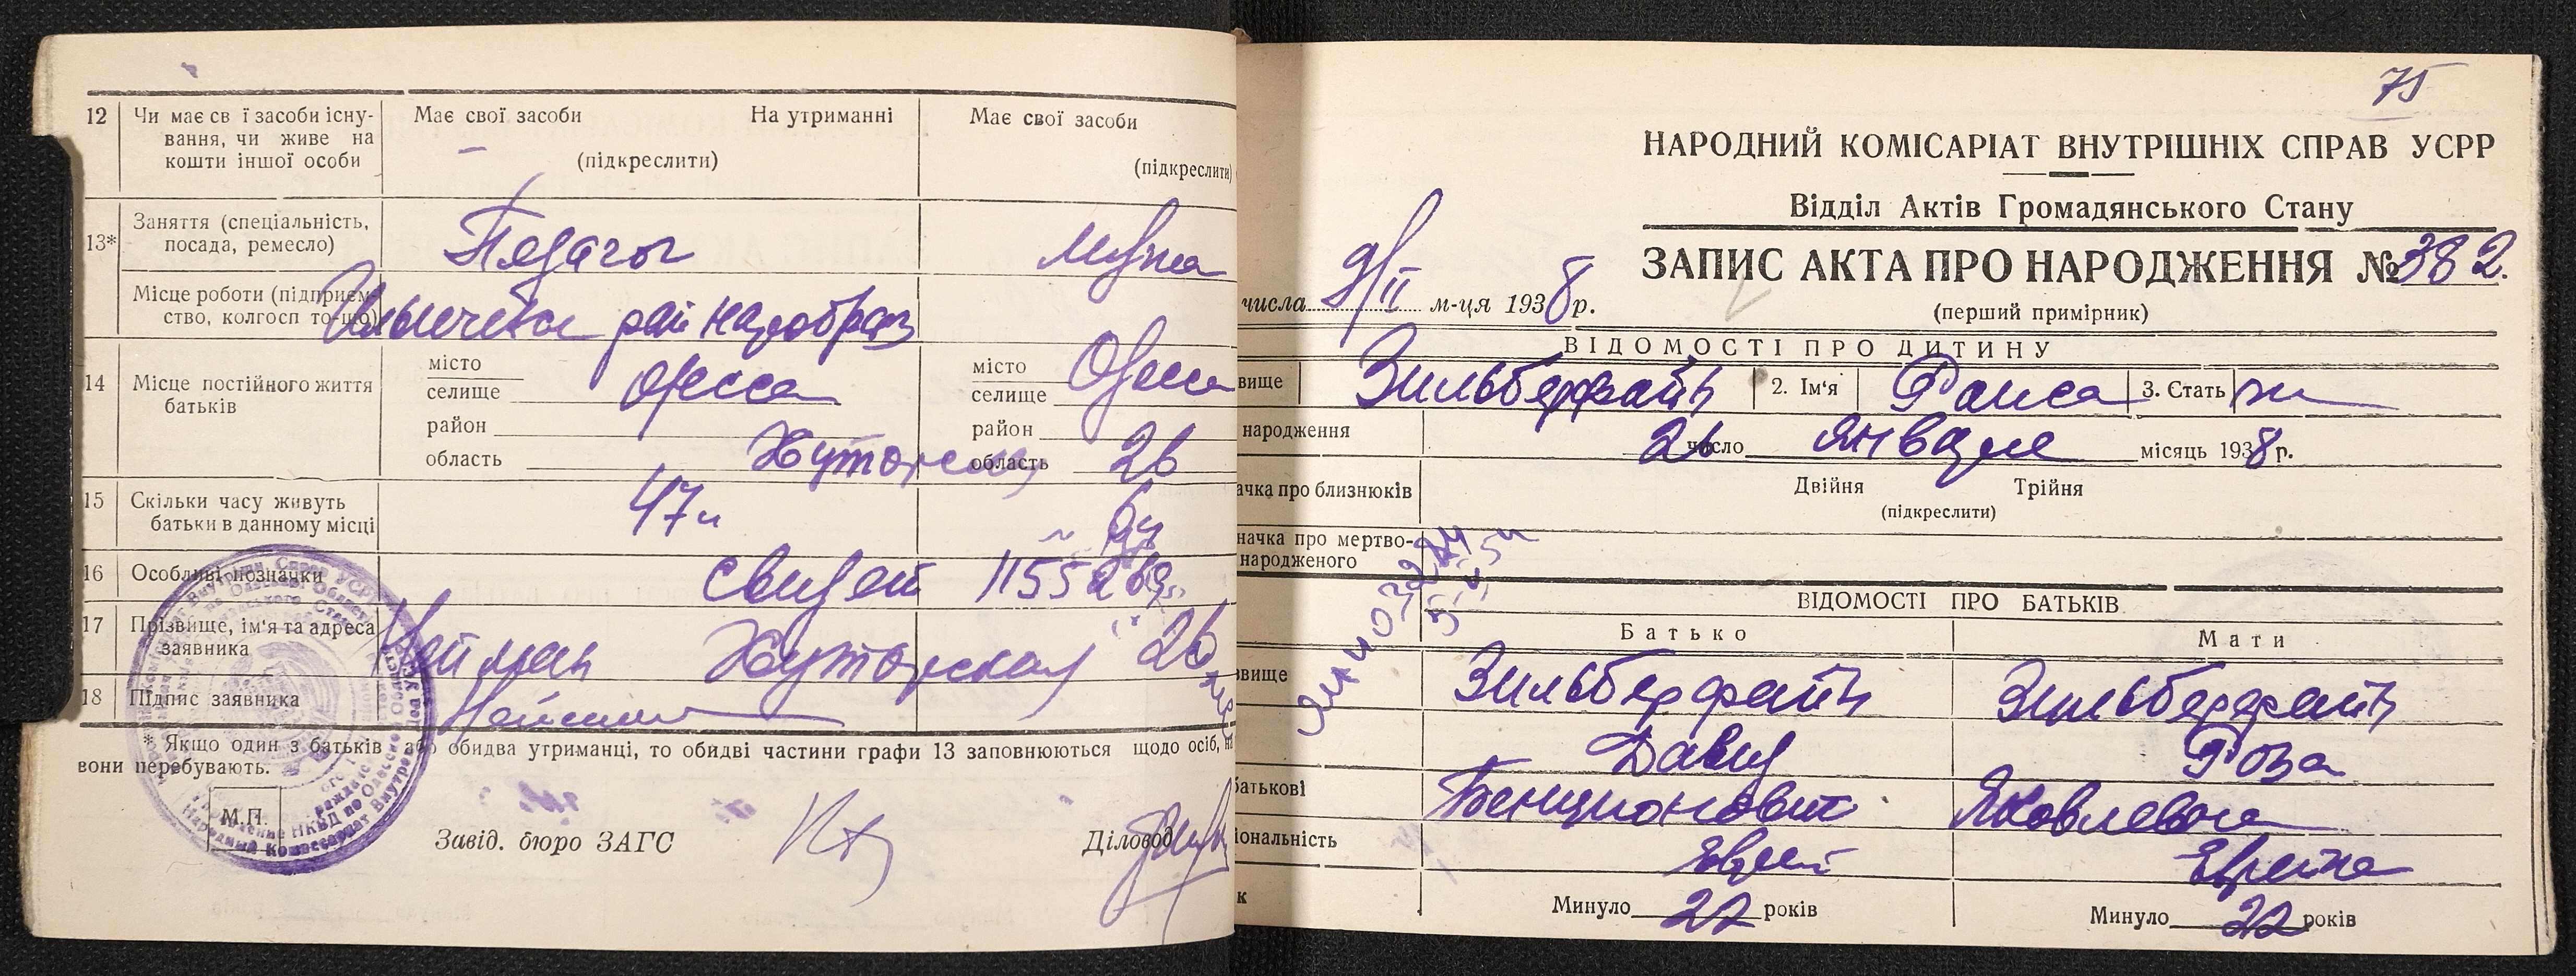 12 Чи має св ї засоби існу-
вання, чи живе на
кошти іншої особи
Має свої засоби На утриманні
(підкреслити)
Має свої засоби
(підкреслити)
13* Заняття (спеціальність,
посада, ремесло)
Педагог
мужа
Місце роботи (підприєм-
ство, колгосп то-що)
рай наробраз
14 Місце постійного життя
батьків
місто
селище Одесса
район
область Хуторская 26
місто
селище Одесса
район
область
15 Скільки часу живуть
батьки в данному місці
16 Особливі позначки
17 Прізвище, ім'я та адреса
заявника
Нейман Хуторская 26
18 Підпис заявника
* Якщо один з батьків або обидва утриманці, то обидві частини графи 13 заповнюються щодо осіб, на
вони перебувають.
М.П.
Завід. бюро ЗАГС
Діловод
75
НАРОДНИЙ КОМІСАРІАТ ВНУТРІШНІХ СПРАВ УСРР
Відділ Актів Громадянського Стану
ЗАПИС АКТА ПРО НАРОДЖЕННЯ № 382.
(перший примірник)
числа 9/II м-ця 1938 р.
ВІДОМОСТІ ПРО ДИТИНУ
вище Зильберфайн 2. Ім'я Раиса 3. Стать ж
народження 26 число января місяць 1938 р.
ачка про близнюків Двійня Трійня
(підкреслити)
начка про мертво-
народженого
ВІДОМОСТІ ПРО БАТЬКІВ
Батько Мати
звище Зильберфайн Зильберфайн
Давид Роза
батькові Бенционович Яковлевна
іональність Еврей Еврейка
к Минуло 22 років Минуло 22 років